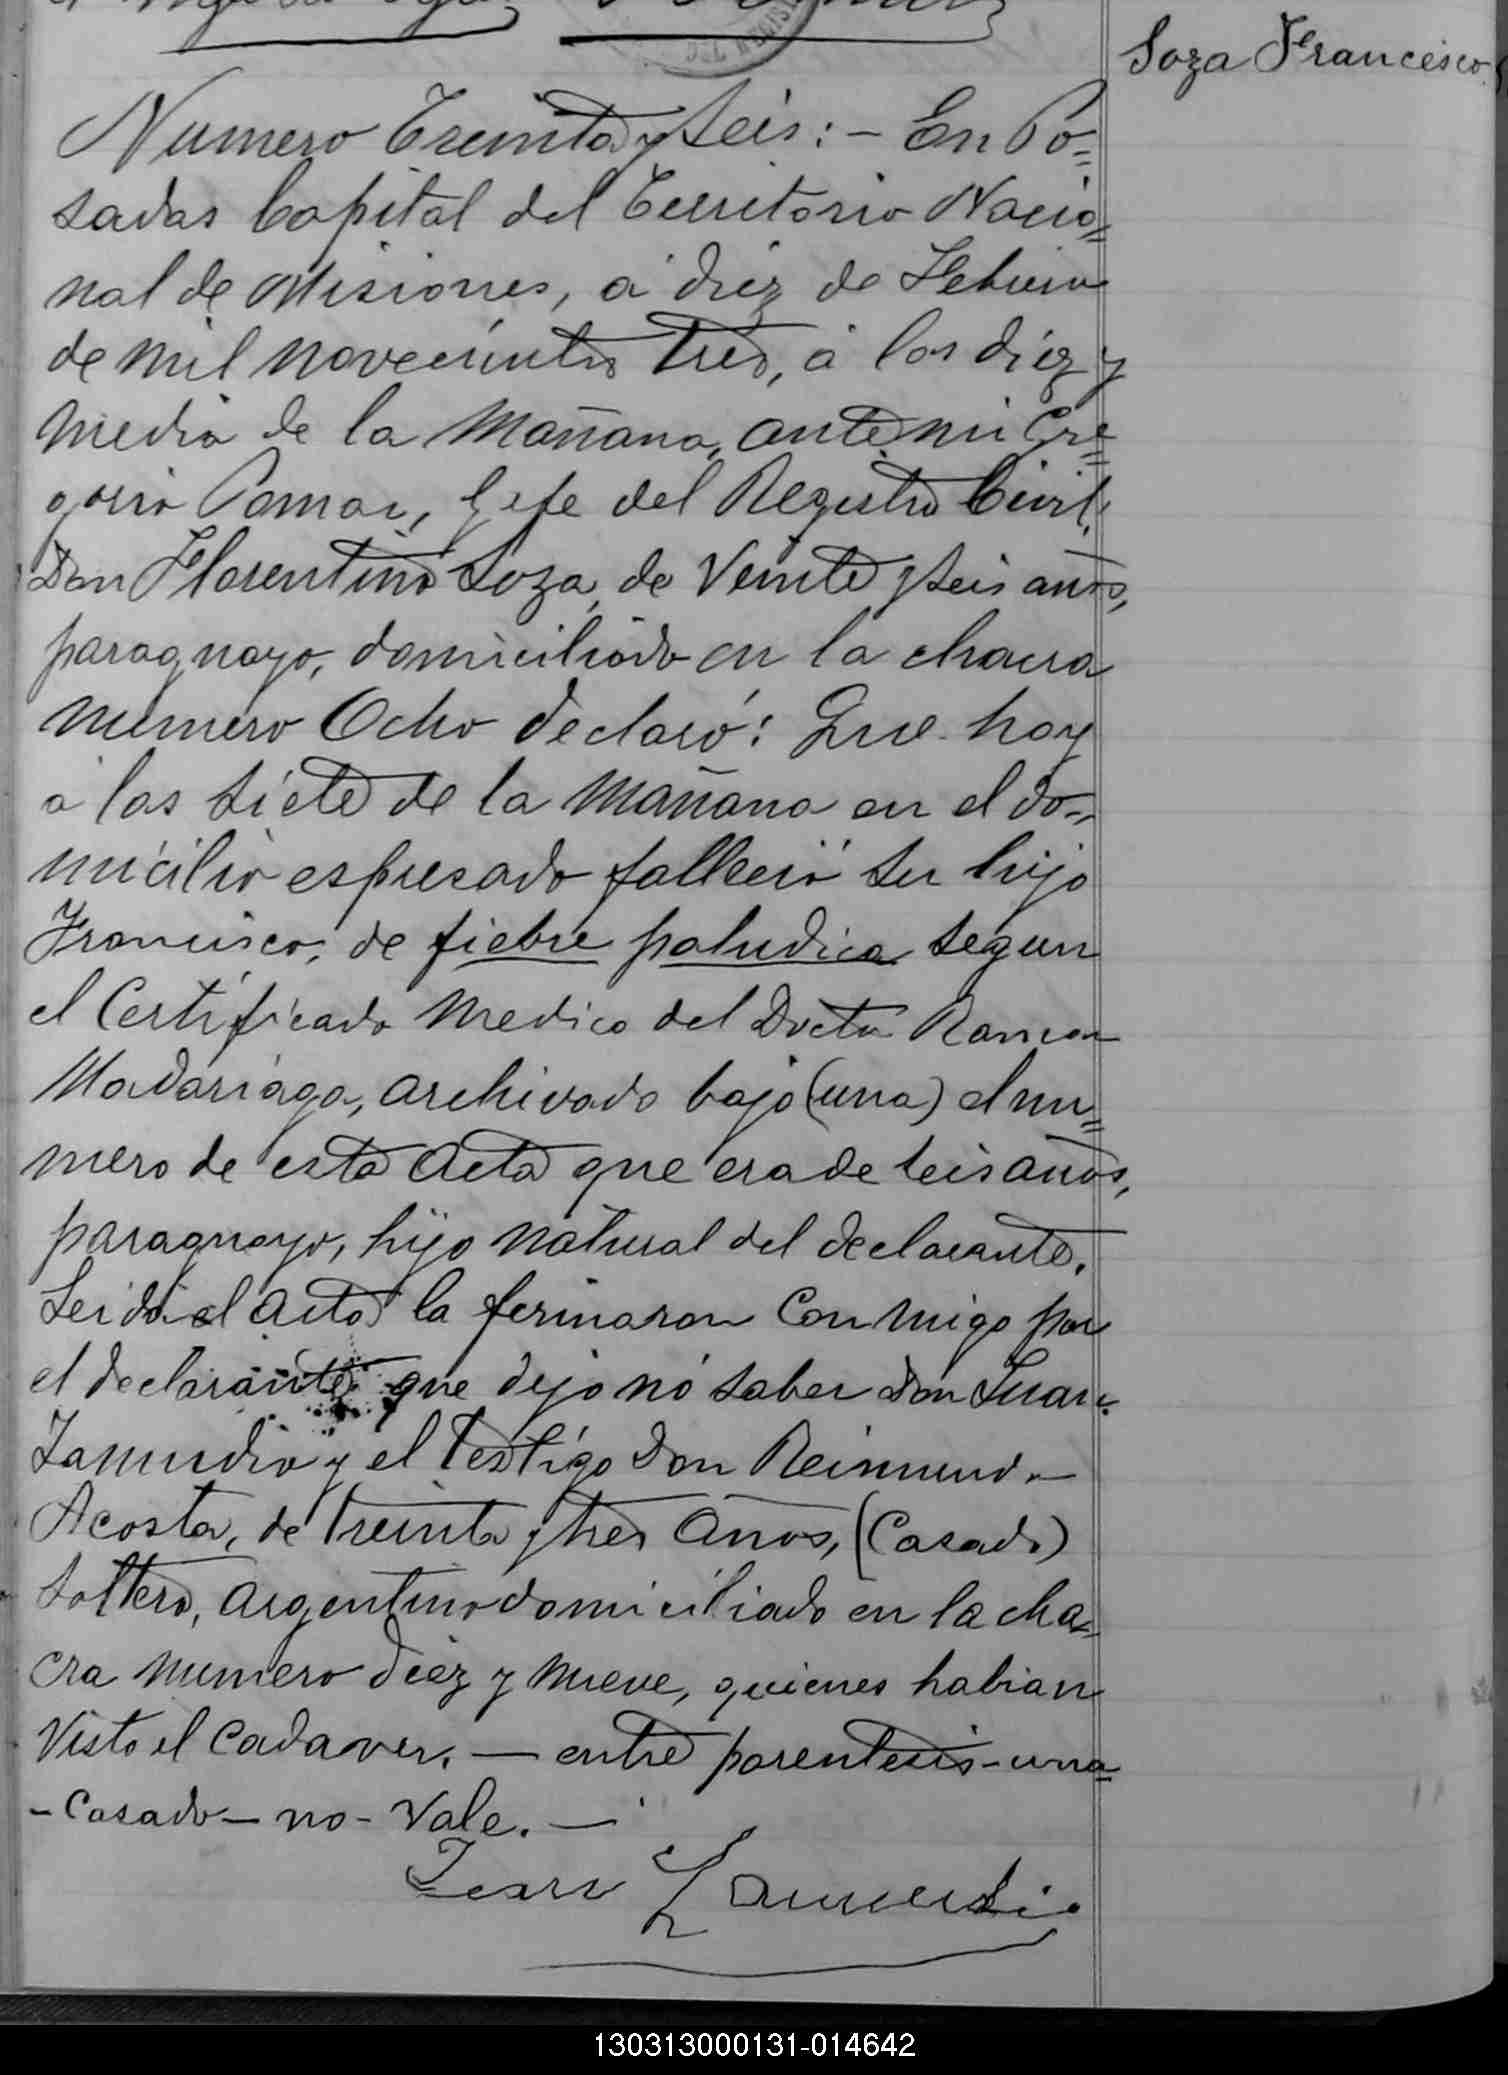 Soza Francisco.
Numero Treinta y seis: — En Po=
sadas Capital del Territorio Nacio=
nal de Misiones, á diez de Febrero
de mil novecientos tres, á las diez y
media de la mañana, ante mi Gre=
gorio Pomar, Gefe del Registro Civil,
Don Florentino Soza, de veinte y seis años,
paraguayo, domiciliado en la chacra
numero Ocho declaró: Que hoy
a las siete de la mañana en el do=
micilio espresado falleció su hijo
Francisco, de fiebre paludica segun
el Certificado Medico del Doctor Ramon
Madariaga, archivado bajo (una) el nu=
mero de esta Acta que era de seis años,
paraguayo, hijo natural del declarante.
Leida el acta la firmaron conmigo por
el declarante que dijo nó saber Don Juan
Zamudio y el testigo Don Reimundo
Acosta, de treinta y tres años, (Casado)
soltero, argentino domiciliado en la cha=
cra numero diez y nueve, quienes habian
visto el cadaver. — entre parentesis - una=
- Casado - no - vale. —
Juan Zamudio
130313000131-014642